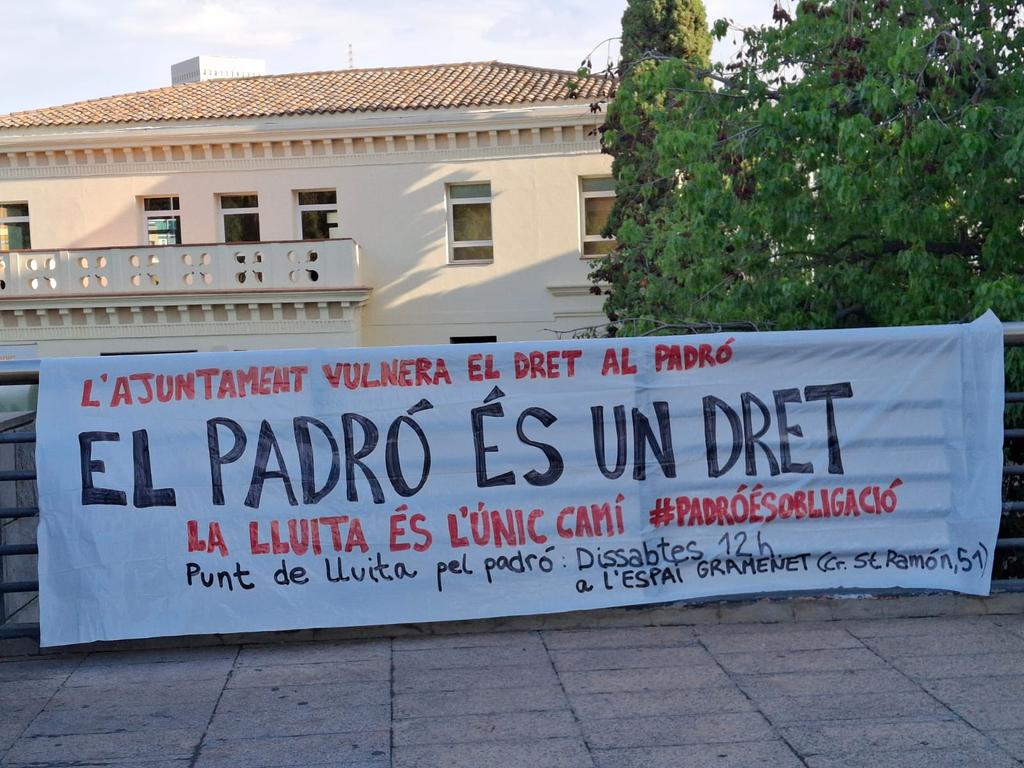 L'AJUNTAMENT VULNERA EL DRET AL PADRÓ
EL PADRÓ ÉS UN DRET
LA LLUITA ÉS L'ÚNIC CAMÍ #PADRÓÉSOBLIGACIÓ
Punt de lluita pel padró: Dissabtes 12h
a l'ESPAI GRAMENET (Cr. St. Ramón, 51)